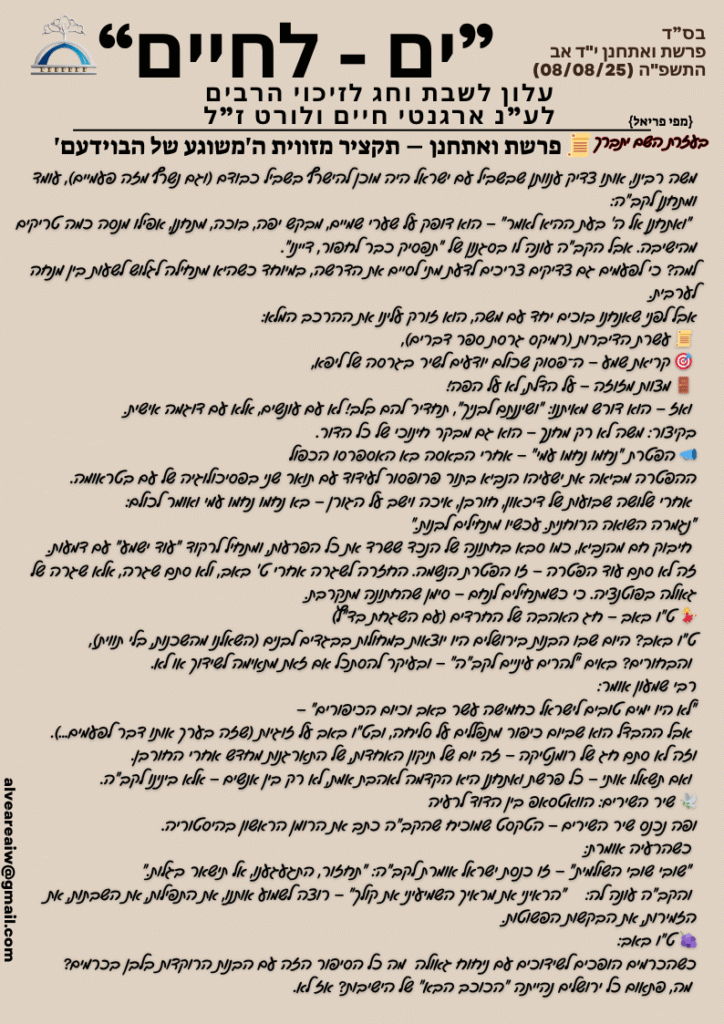 בס"ד
פרשת ואתחנן י"ד אב
התשפ"ה (08/08/25)
"ים - לחיים"
עלון לשבת וחג לזיכוי הרבים
לע"נ ארגנטי חיים ולורט ז"ל
{מפי פריאל}
בעזרת השם יתברך
פרשת ואתחנן – תקציר מזווית ה'משוגע של הבוידעם'
משה רבינו, אותו צדיק ענוותן שבשביל עם ישראל היה מוכן להישרף בשביל כבודם (וגם נשרף מזה פעמיים), עומד
ומתחנן לקב"ה:
"ואתחנן אל ה' בעת ההיא לאמר" – הוא דופק על שערי שמיים, מבקש יפה, בוכה, מתחנן, אפילו מנסה כמה טריקים
מהישיבה. אבל הקב"ה עונה לו בסגנון של "תפסיק כבר לחפור, דיינו".
למה? כי לפעמים גם צדיקים צריכים לדעת מתי לסיים את הדרשה, במיוחד כשהיא מתחילה לגלוש לשעות בין מנחה
לערבית.
אבל לפני שאנחנו בוכים יחד עם משה, הוא זורק עלינו את ההרכב המלא:
📜 עשרת הדיברות (רמיקס גרסת ספר דברים),
🎯 קריאת שמע – ה־פסוק שכולם יודעים לשיר בגרסה של ליפא,
🚪 מצוות מזוזה – על הדלת, לא על הפה!
ואז – הוא דורש מאיתנו: "ושיננתם לבניך", תחדיר להם בלב! לא עם עונשים, אלא עם דוגמה אישית.
בקיצור: משה לא רק מחנך – הוא גם מבקר חינוכי של כל הדור.
📣 הפטרת "נחמו נחמו עמי" – אחרי הבאסה בא האספרסו הכפול
ההפטרה מביאה את ישעיהו הנביא בתור פרופסור לעידוד עם תואר שני בפסיכולוגיה של עם בטראומה.
אחרי שלושה שבועות של דיכאון, חורבן, איכה וישב על הגורן – בא נחמו נחמו עמי ואומר לכולם:
"נגמרה השואה הרוחנית. עכשיו מתחילים לבנות."
חיבוק חם מהנביא, כמו סבא בחתונה של הנכד ששרד את כל הפרעות, ומתחיל לרקוד "עוד ישמע" עם דמעות.
זה לא סתם עוד הפטרה – זו הפטרת הנשמה. החזרה לשגרה אחרי ט' באב, ולא סתם שגרה, אלא שגרה של
גאולה בפוטנציה. כי כשמתחילים לנחם – סימן שהחתונה מתקרבת.
💃 ט"ו באב – חג האהבה של החרדים (עם השגחת בד"ץ)
ט"ו באב? היום שבו הבנות בירושלים היו יוצאות במחולות בבגדים לבנים (השאלנו מהשכנות, בלי תווית),
והבחורים? באים "להרים עיניים לקב"ה" – ובעיקר להסתכל אם זאת מתאימה לשידוך או לא.
רבי שמעון אומר:
"לא היו ימים טובים לישראל כחמישה עשר באב וכיום הכיפורים" –
אבל ההבדל הוא שביום כיפור מתפללים על סליחה, ובט"ו באב על זוגיות (שזה בערך אותו דבר לפעמים...).
וזה לא סתם חג של רומנטיקה – זה יום של תיקון האחדות, של התארגנות מחדש אחרי החורבן.
ואם תשאלו אותי – כל פרשת ואתחנן היא הקדמה לאהבת אמת, לא רק בין אנשים – אלא בינינו לקב"ה.
🕊️ שיר השירים: הוואטסאפ בין הדוד לרעיה
ופה נכנס שיר השירים – הטקסט שמוכיח שהקב"ה כתב את הרומן הראשון בהיסטוריה.
כשהרעיה אומרת:
"שובי שובי השולמית" – זו כנסת ישראל אומרת לקב"ה: "תחזור, התגעגענו, אל תישאר בגלות."
והקב"ה עונה לה: "הראיני את מראיך השמיעיני את קולך" – רוצה לשמוע אותנו, את התפילות, את השבתות, את
הזמירות, את הבקשות הפשוטות.
🍇 ט"ו באב:
כשהכרמים הופכים לשידוכים עם ניחוח גאולה מה כל הסיפור הזה עם הבנות הרוקדות בלבן בכרמים?
מה, פתאום כל ירושלים נהייתה "הכוכב הבא" של הישיבות? אז לא.
alveareaiw@gmail.com